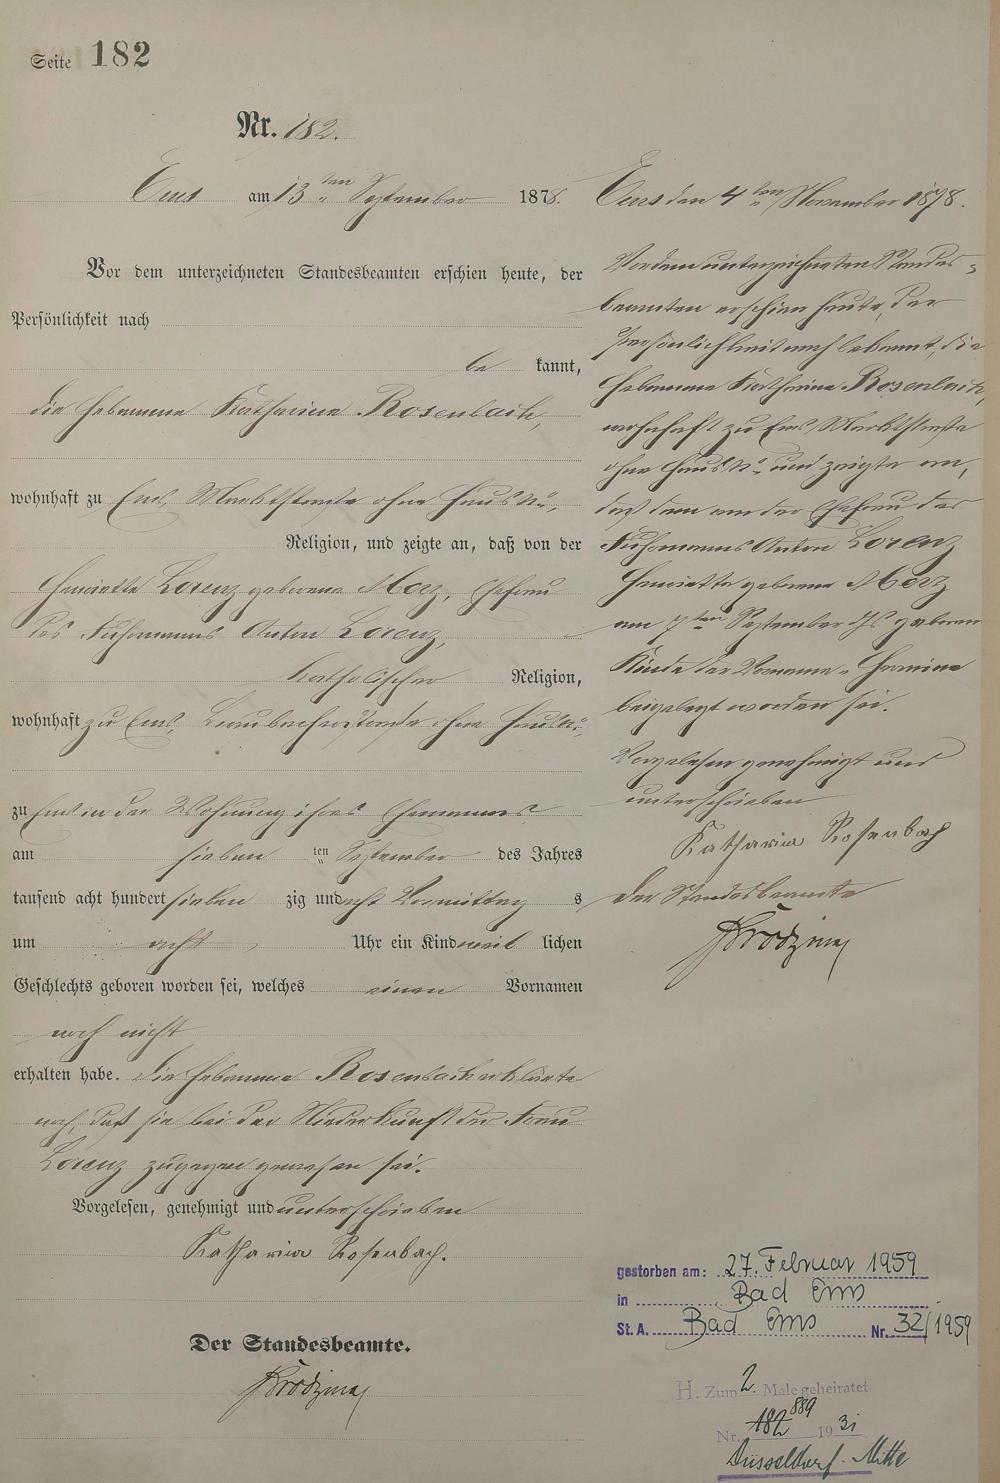 Seite 182
Nr. 182.
Ems am 13ten September 1878.
Vor dem unterzeichneten Standesbeamten erschien heute, der
Persönlichkeit nach
be kannt,
die Hebamme Katharina Rosenbach,
wohnhaft zu Ems, Marktstraße ohne Haus No,
Religion, und zeigte an, daß von der
Henriette Lorenz geborene Merz, Ehefrau
des Fuhrmanns Anton Lorenz,
katholischer Religion,
wohnhaft zu Ems, ohne Haus No,
zu Ems in der Wohnung ihres Ehemannes
am sieben ten September des Jahres
tausend acht hundert sieben zig und acht Vormittag s
um acht Uhr ein Kind weib lichen
Geschlechts geboren worden sei, welches einen Vornamen
noch nicht
erhalten habe. Die Hebamme Rosenbach erklärte
noch, daß sie bei der Niederkunft der Frau
Lorenz zugegen gewesen sei.
Vorgelesen, genehmigt und unterschrieben
Katharina Rosenbach.
Der Standesbeamte.
Ems den 4ten November 1878.
Vor dem unterzeichneten Standes-
beamten erschien heute, der
Persönlichkeit nach bekannt, die
Hebamme Katharina Rosenbach,
wohnhaft zu Ems, Marktstraße
ohne Haus No und zeigte an,
daß dem von der Ehefrau des
Fuhrmanns Anton Lorenz
Henriette geborene Merz
am 7ten September geborenen
Kinde der Vorname "Hermine
beigelegt worden sei.
Vorgelesen genehmigt und
unterschrieben
Katharina Rosenbach
Der Standesbeamte
gestorben am: 27. Februar 1959
in Bad Ems
St. A. Bad Ems Nr. 32/1959
H. Zum 2. Male geheiratet
Nr. 889 1931
Düsseldorf-Mitte